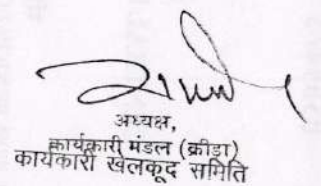 अध्यक्ष,
कार्यकारी मंडल (क्रीडा)
कार्यकारी खेलकूद समिति